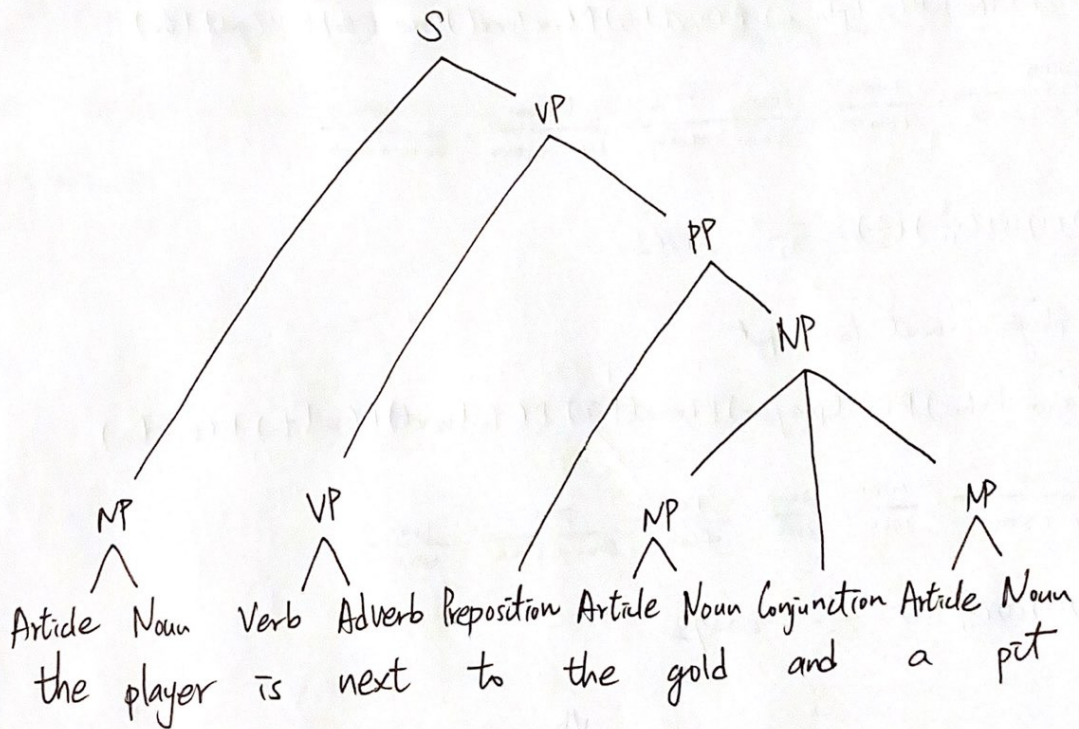 S
VP
PP
NP
NP VP NP NP
Article Noun Verb Adverb Preposition Article Noun Conjunction Article Noun
the player is next to the gold and a pit